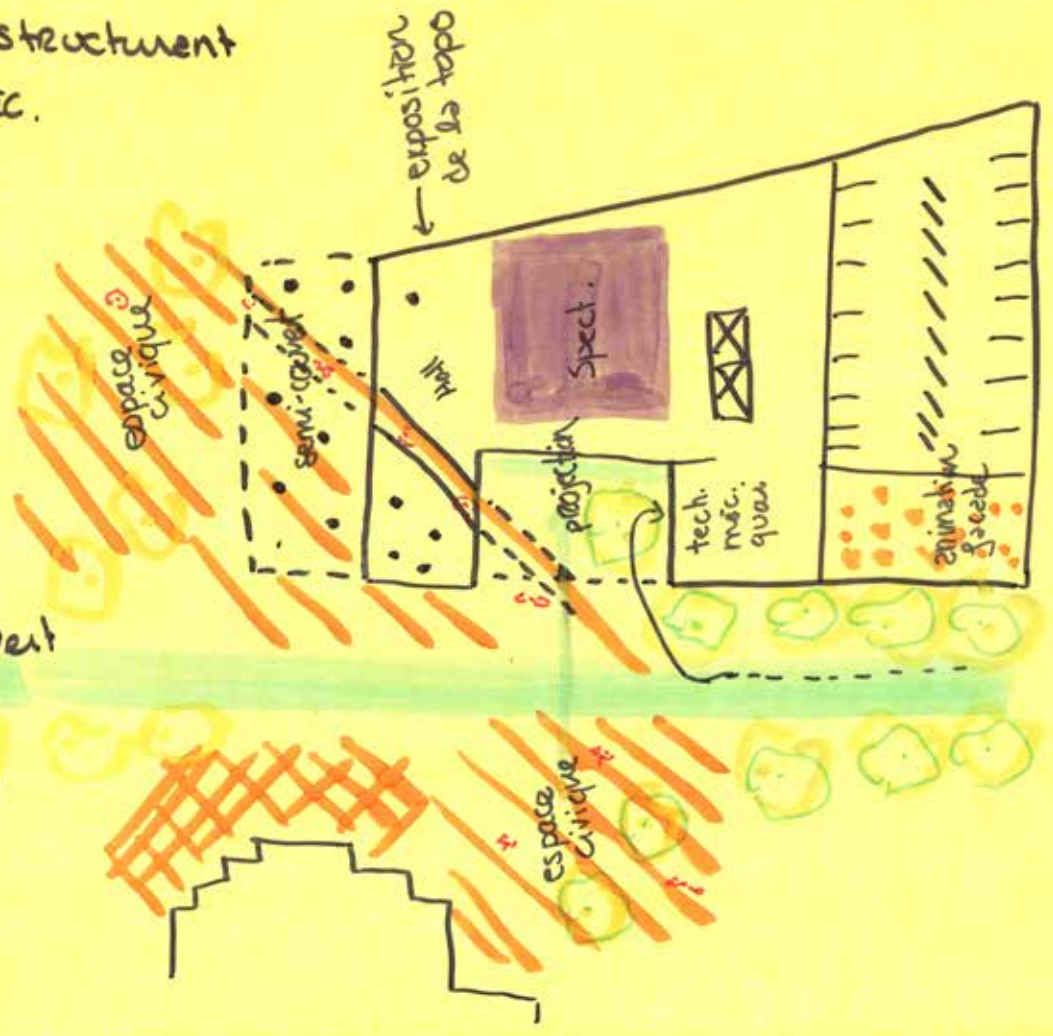 structurent
IC.
← exposition
de la topo
espace
civique
semi-couvert
Hall
Spect.
projection
tech.
méc.
quai
animation
façade
espace
civique